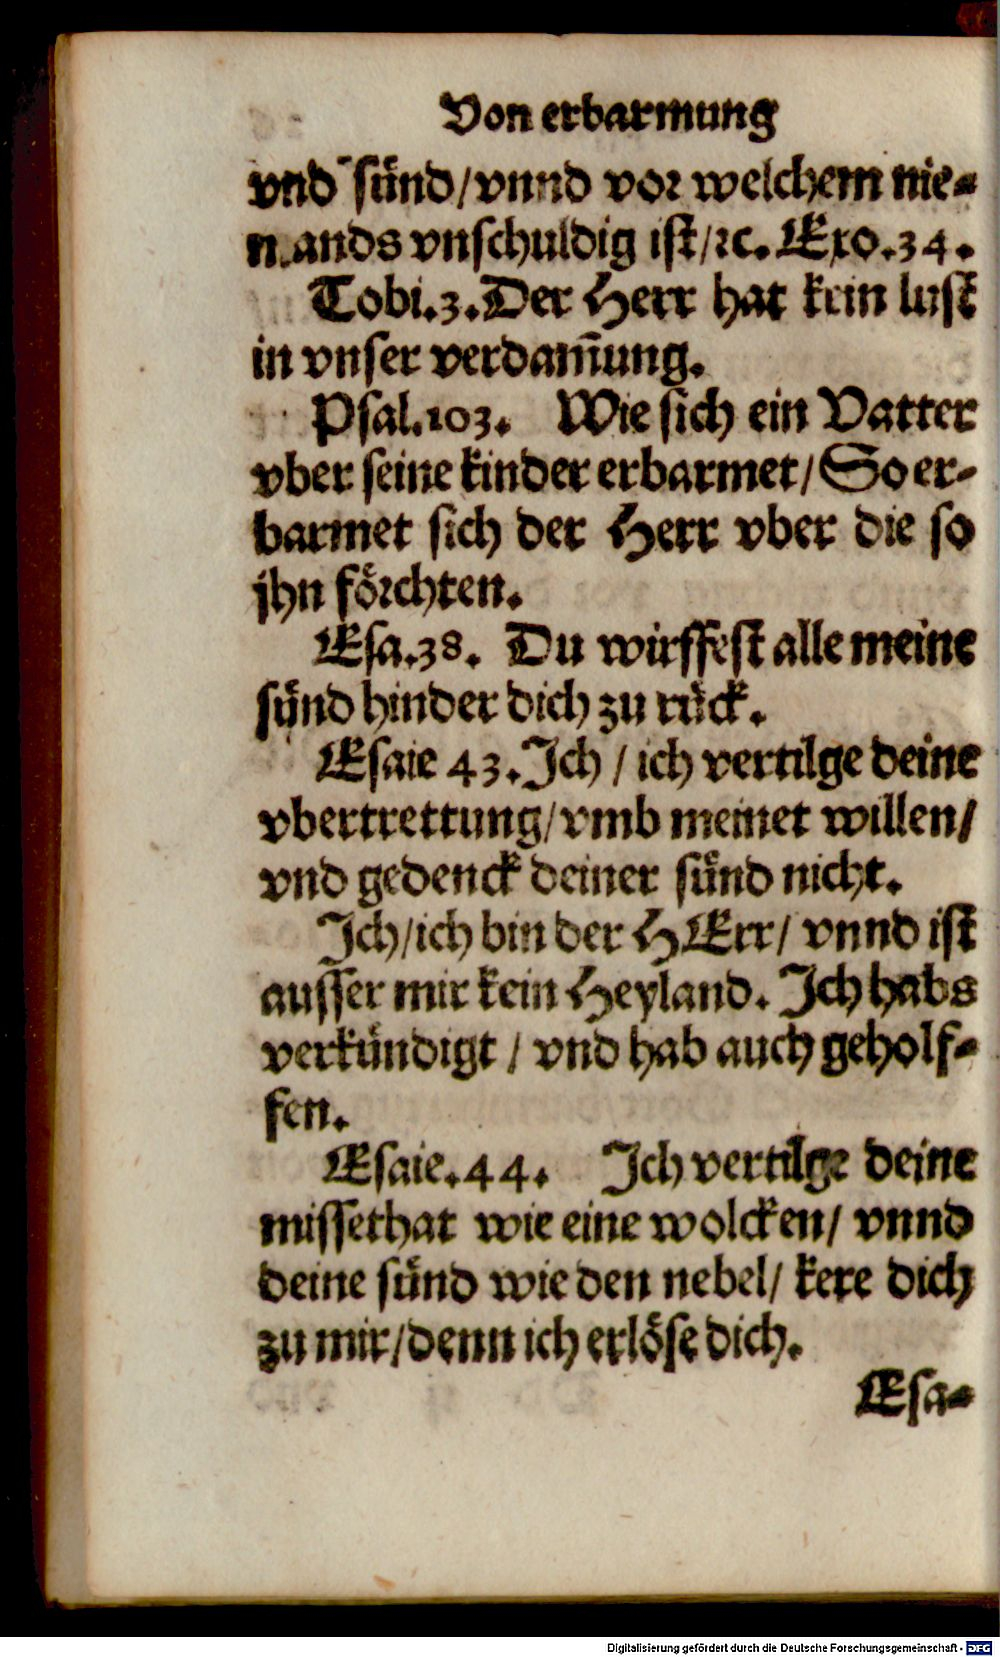 Von erbarmung
vnd sünd/vnnd vor welchem nie-
mands vnschuldig ist/ꝛc. Exo.34.
Tobi.3. Der Herr hat kein lust
in vnser verdam̄ung.
Psal.103. Wie sich ein Vatter
vber seine kinder erbarmet/ So er-
barmet sich der Herr vber die so
jhn förchten.
Esa.38. Du wirffest alle meine
sünd hinder dich zu rück.
Esaie 43. Ich / ich vertilge deine
vbertrettung/vmb meinet willen/
vnd gedenck deiner sünd nicht.
Ich/ich bin der HErr/ vnnd ist
ausser mir kein Heyland. Ich habs
verkündigt / vnd hab auch geholf-
fen.
Esaie.44. Ich vertilge deine
missethat wie eine wolcken/ vnnd
deine sünd wie den nebel/ kere dich
zu mir/denn ich erlöse dich.
Esa-
Digitalisierung gefördert durch die Deutsche Forschungsgemeinschaft - DFG